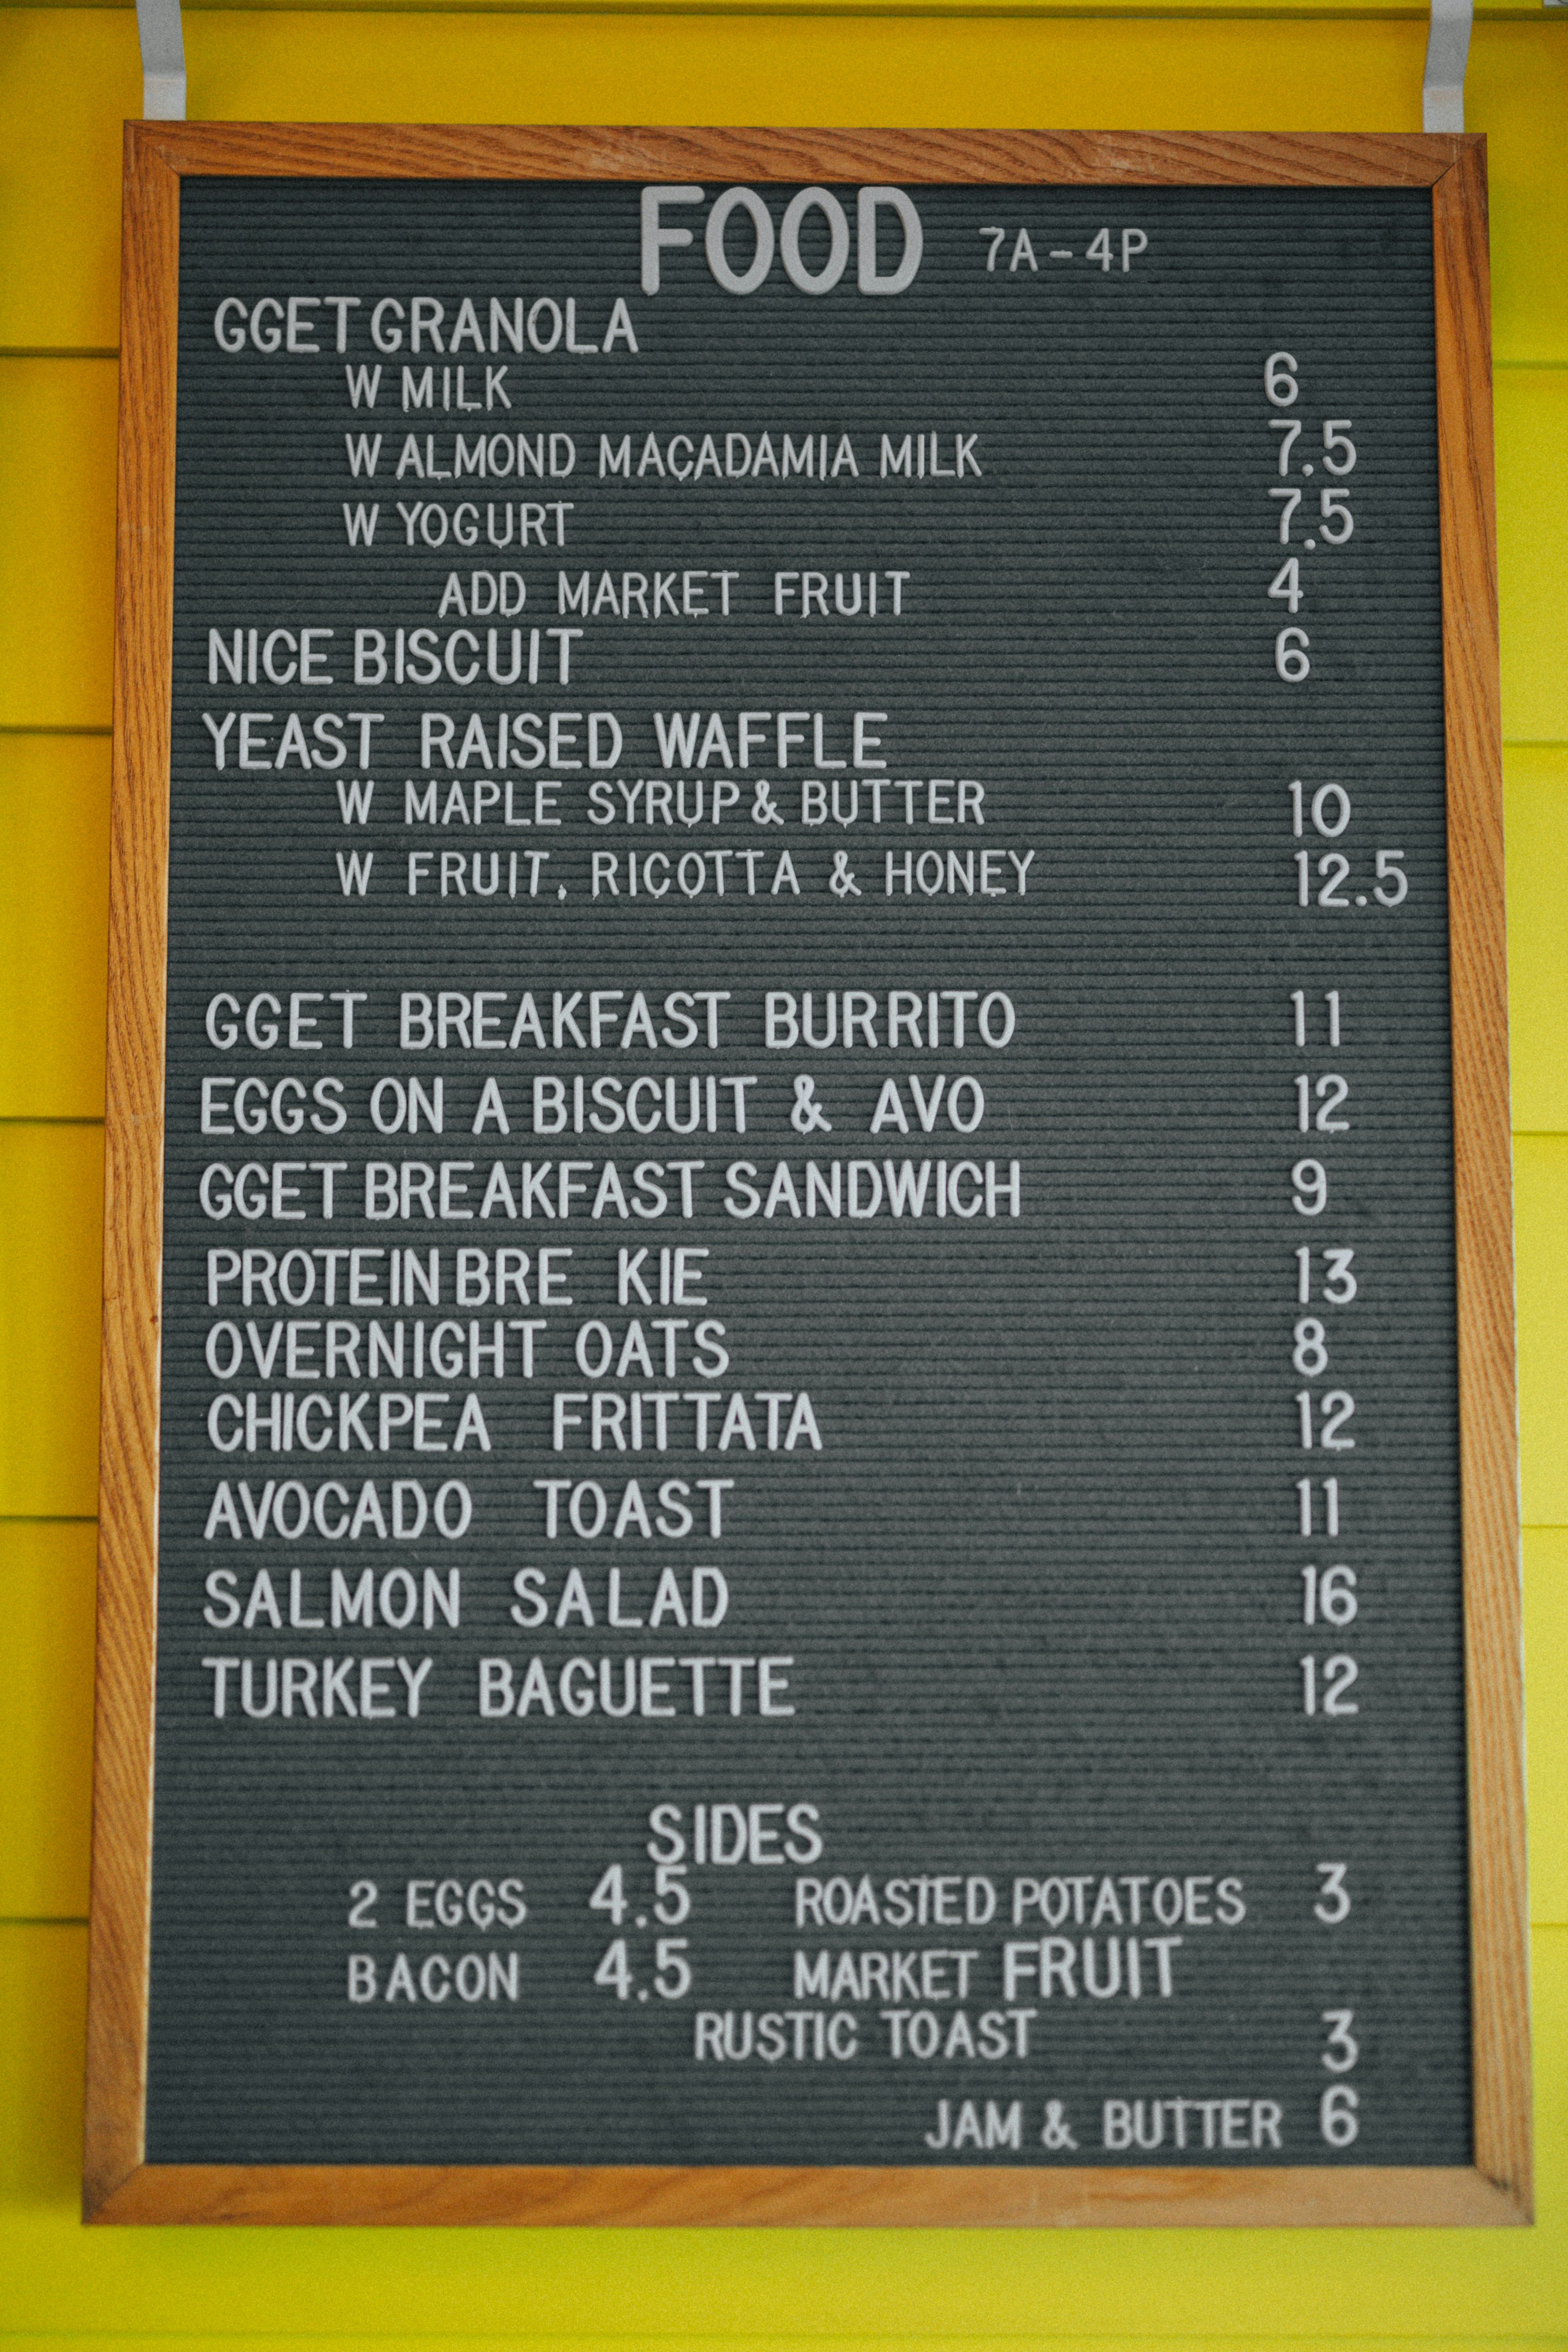 FOOD 7A-4P
GGET GRANOLA
W MILK 6
W ALMOND MACADAMIA MILK 7.5
W YOGURT 7.5
ADD MARKET FRUIT 4
NICE BISCUIT 6
YEAST RAISED WAFFLE
W MAPLE SYRUP & BUTTER 10
W FRUIT, RICOTTA & HONEY 12.5
GGET BREAKFAST BURRITO 11
EGGS ON A BISCUIT & AVO 12
GGET BREAKFAST SANDWICH 9
PROTEIN BRE KIE 13
OVERNIGHT OATS 8
CHICKPEA FRITTATA 12
AVOCADO TOAST 11
SALMON SALAD 16
TURKEY BAGUETTE 12
SIDES
2 EGGS 4.5 ROASTED POTATOES 3
BACON 4.5 MARKET FRUIT
RUSTIC TOAST 3
JAM & BUTTER 6